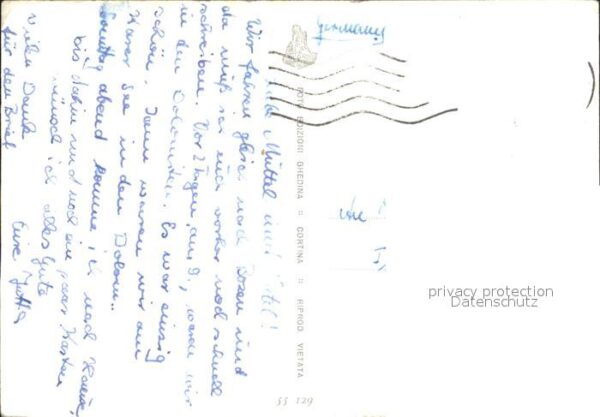 Germany
Wir fahren gleich nach Bozen und
da muß ich euch vorher noch schnell
schreiben. Vor 2 Tagen waren wir
in den Dolomiten. Es war einzig
schön. Dann waren wir am
Karer See in den Dolom..
Sonntag abend komme ich nach Hause,
bis dahin und noch ein paar Karten
wünsch ich alles Gute
Eure Jutta
Vielen Dank
für den Brief
FOTO EDIZIONI GHEDINA :: CORTINA :: RIPROD. VIETATA
55 129
privacy protection
Datenschutz